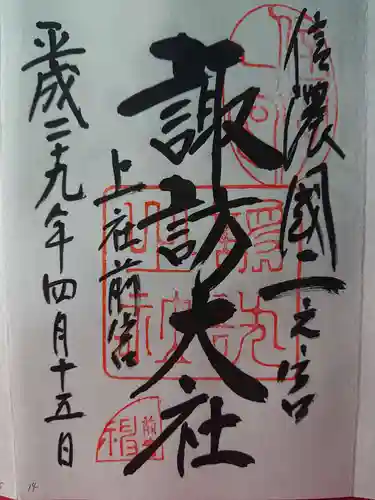 信濃國一之宮
諏訪大社
上社前宮
平成二十九年四月十五日
14